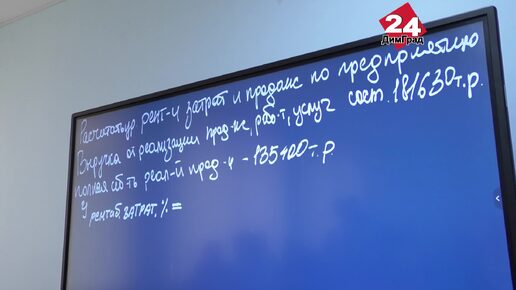 24
ДимГрад
Рассчитать ур. рент-и затрат и продаж по предприятию
Выручка от реализации прод-ии, работ, услуг сост. 181630 т.р.
полная себ-ть реал-й прод-и - 135400 т.р.
У рентаб. ЗАТРАТ. % =